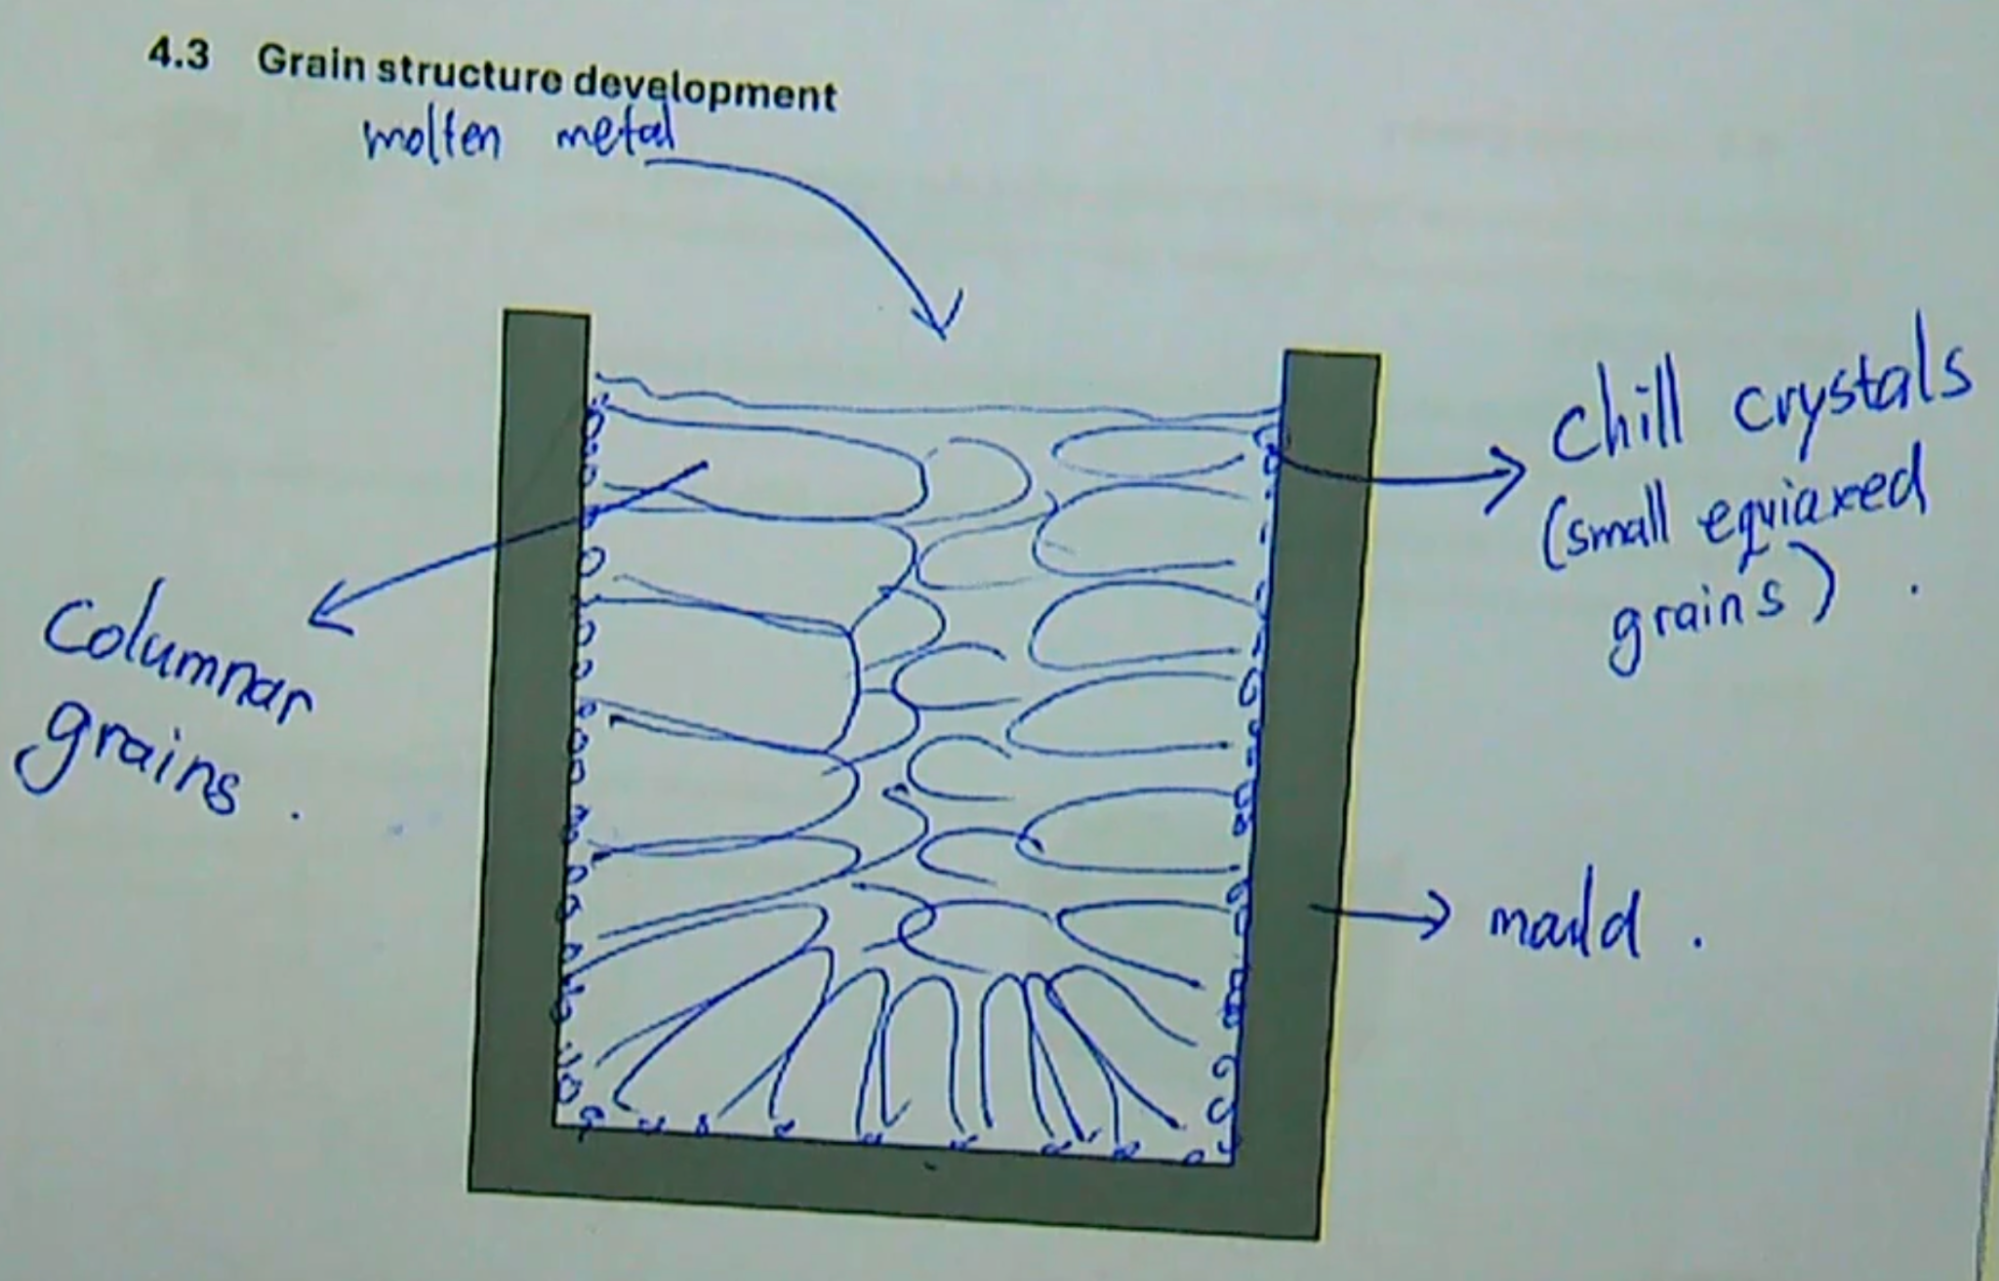 4.3 Grain structure development
molten metal
chill crystals
(small equiaxed
grains).
Columnar
grains.
mould.